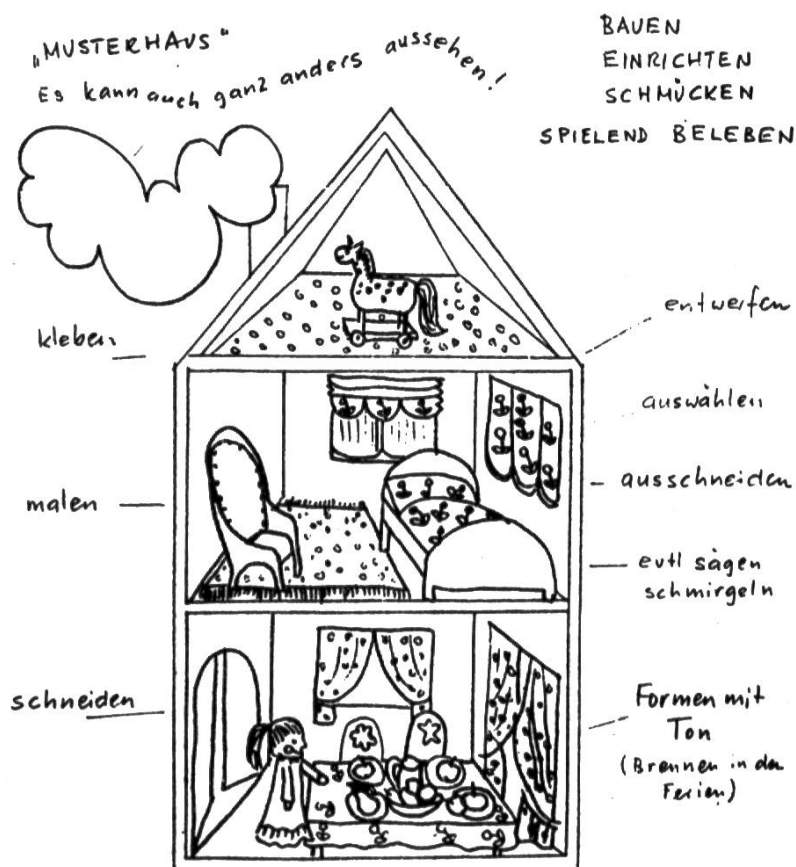 „MUSTERHAUS“
Es kann auch ganz anders aussehen!
BAUEN
EINRICHTEN
SCHMÜCKEN
SPIELEND BELEBEN
kleben
entwerfen
auswählen
malen
ausschneiden
evtl sägen
schmirgeln
schneiden
Formen mit
Ton
(Brennen in den
Ferien)